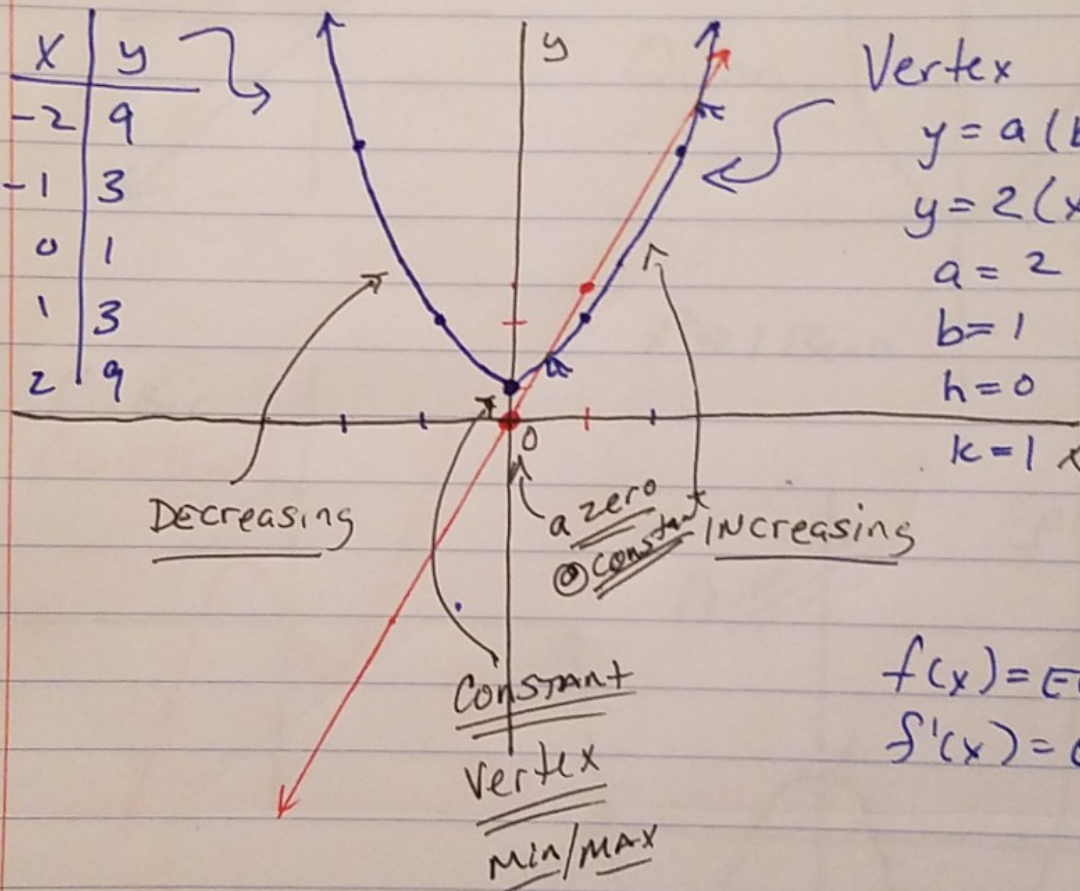 x y
-2 9
-1 3
0 1
1 3
2 9
y
0
Vertex
y = a (b
y = 2 (x
a = 2
b = 1
h = 0
k = 1
Decreasing
a zero
@ constant
Increasing
Constant
Vertex
Min/Max
f(x) =
f'(x) =